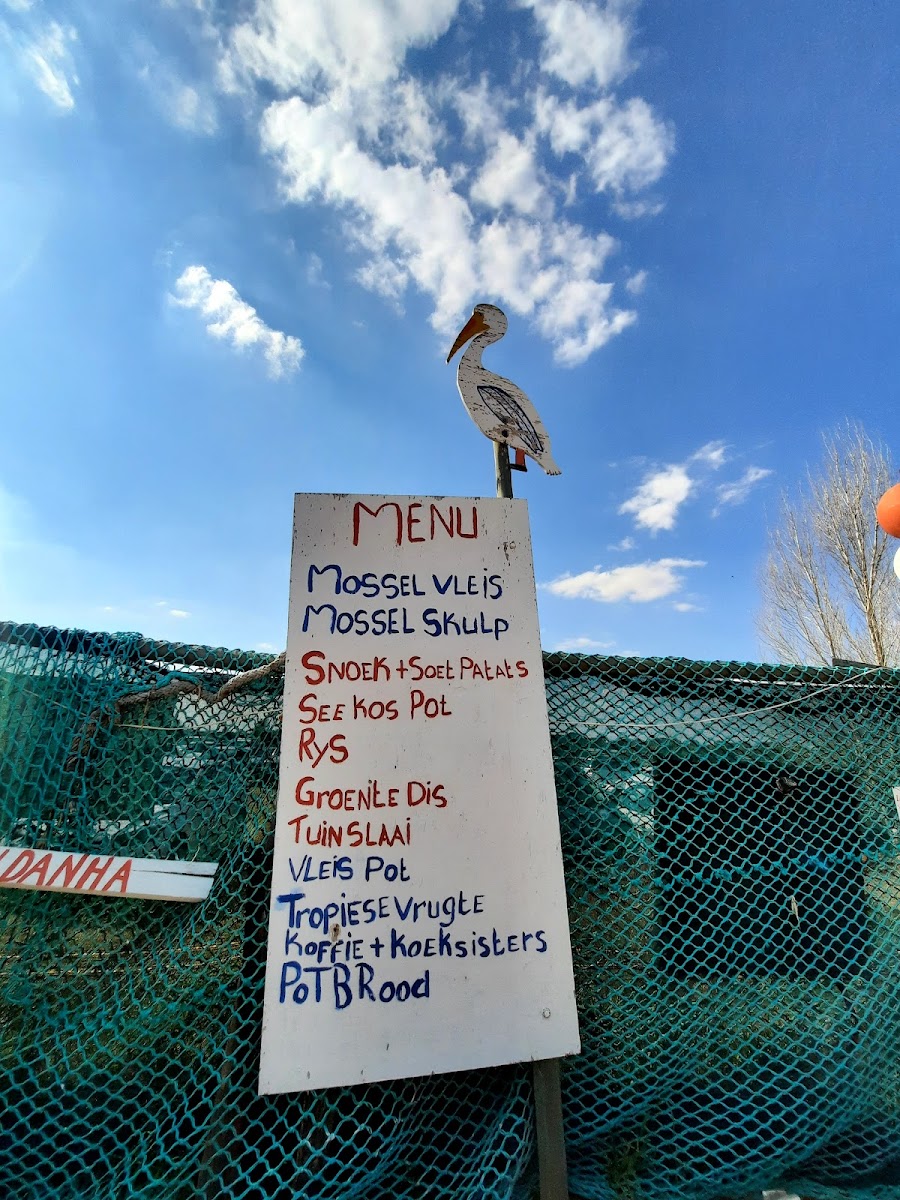 MENU
MOSSEL VLEIS
MOSSEL SKULP
SNOEK + SOET PATATS
SEE KOS POT
RYS
GROENTE DIS
TUINSLAAI
VLEIS POT
TROPIESE VRUGTE
KOFFIE + KOEKSISTERS
POT BROOD
LDANHA